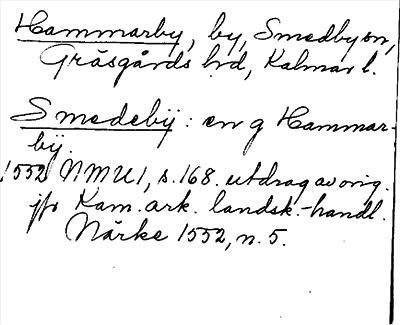 Hammarby, by, Smedby sn,
Gräsgårds hd, Kalmar l.
Smedebÿ: en g Hammar-
bÿ.
1552 NMU1, s. 168. utdrag av orig.
jfr Kam. ark. landsk.-handl.
Närke 1552, n. 5.